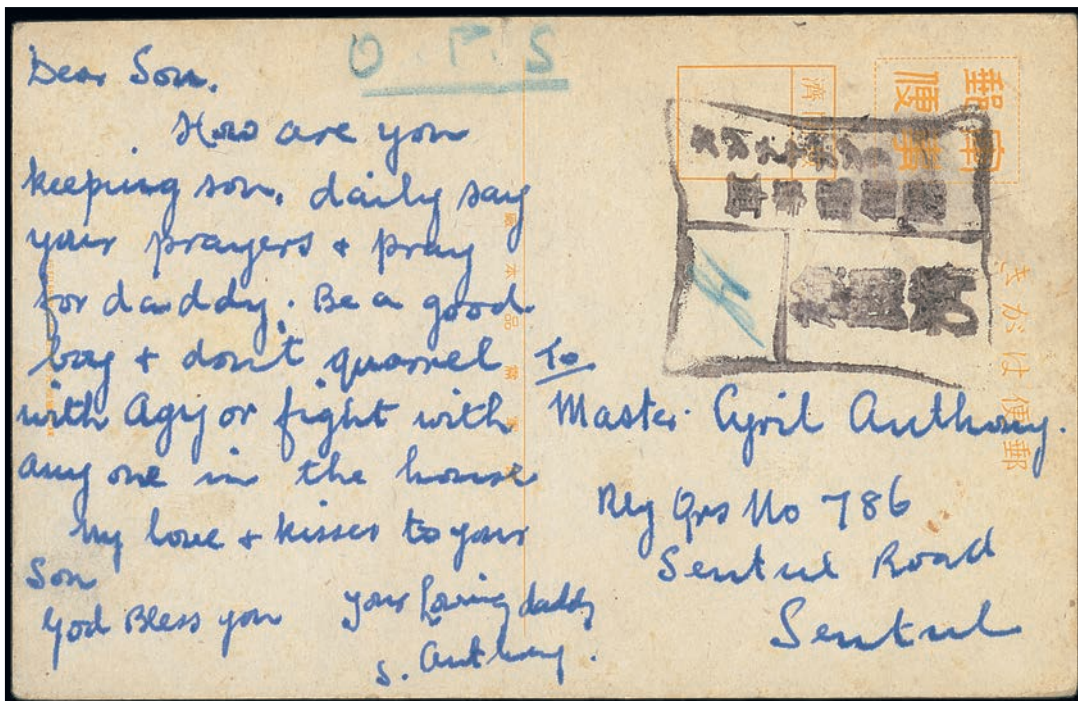 O.P.S
Dear Son.
How are you
keeping son. daily say
your prayers + pray
for daddy. Be a good
boy + don't quarrel
with Agy or fight with
any one in the house
My love + kisses to you
Son
God Bless you
Your loving daddy
S. Anthony.
To
Master. Cyril Anthony.
Rly Qrs No 786
Sentul Road
Sentul
軍事
郵便
郵便はがき